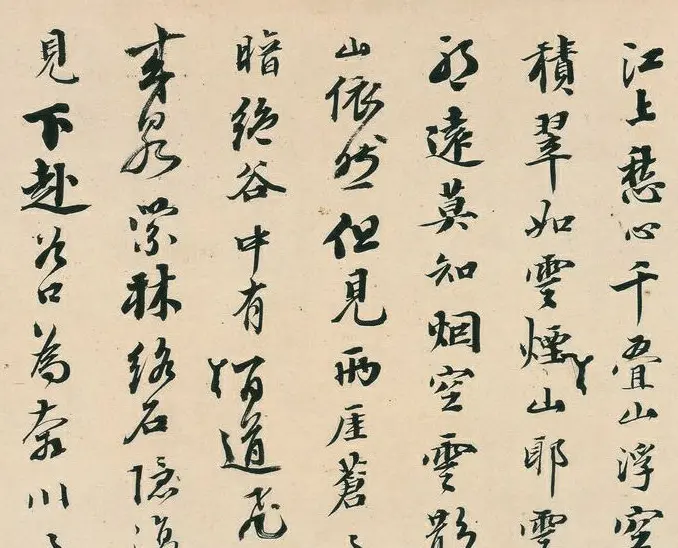 江上愁心千疊山浮空
積翠如雲煙山耶雲
耶遠莫知烟空雲散
山依然但見兩崖蒼〻
暗絶谷中有百道飛
來泉縈林絡石隱
見下赴谷口為奔川〻